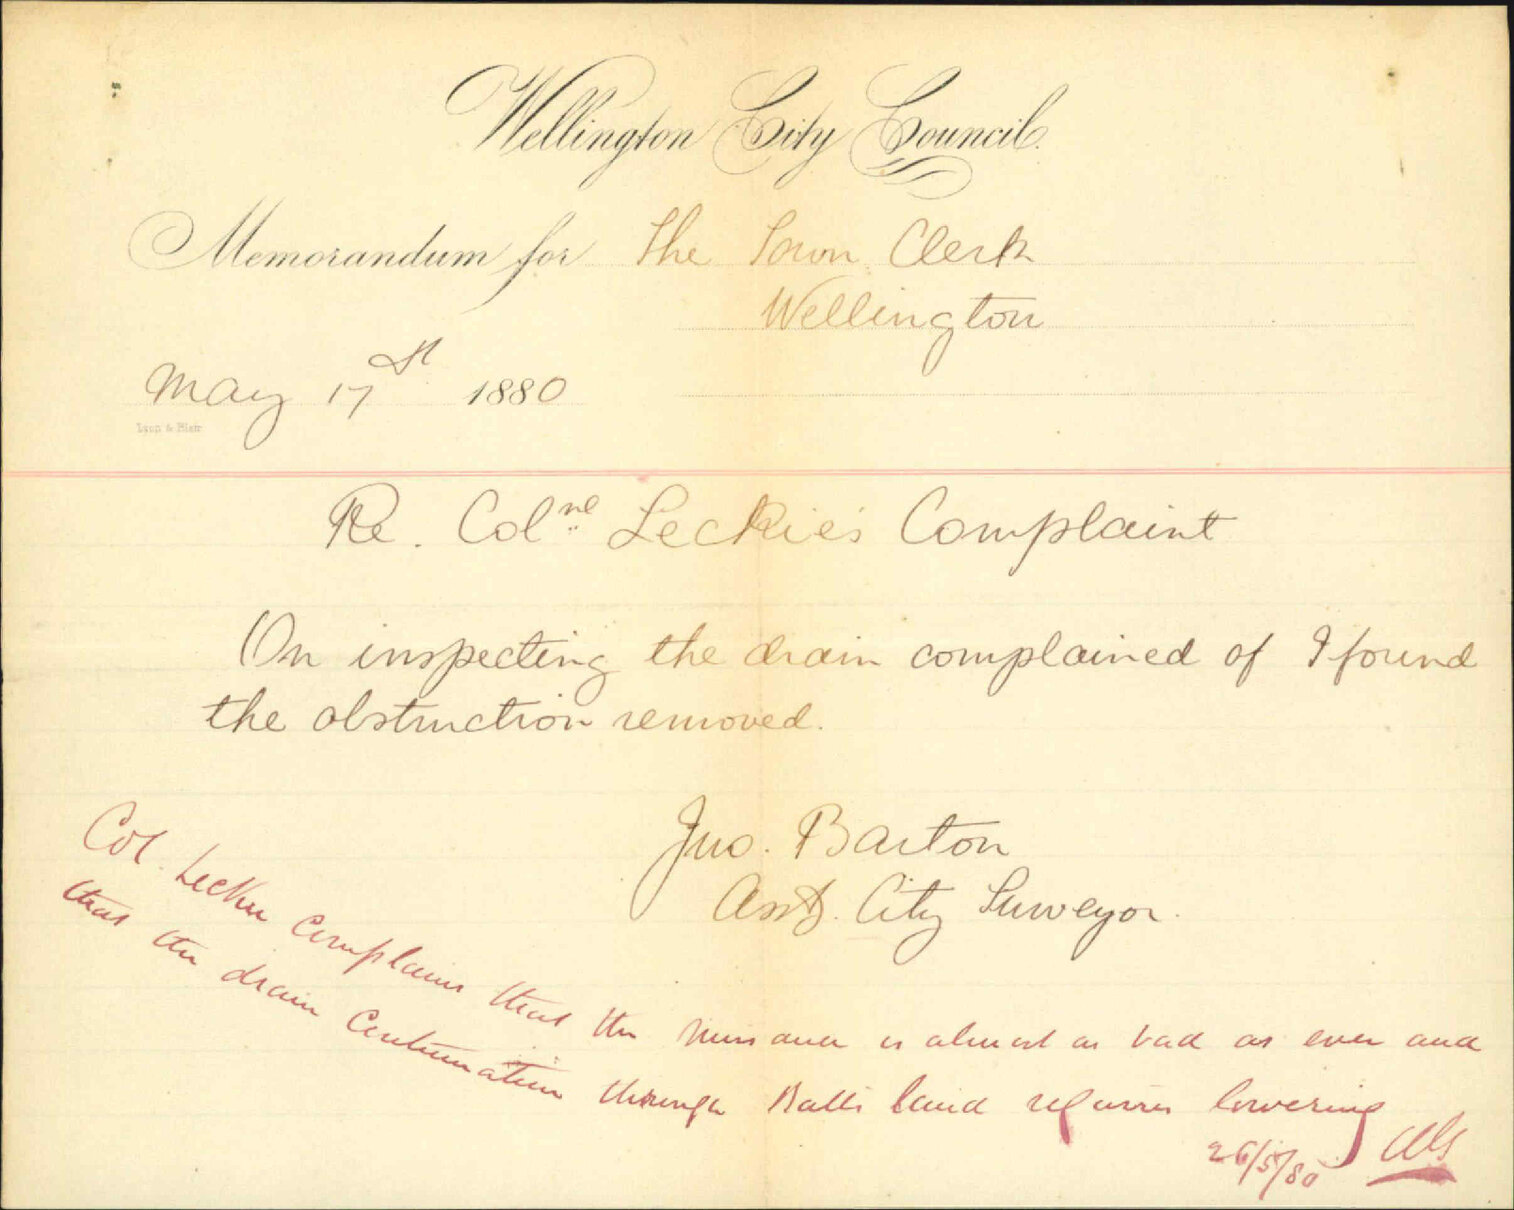 Wellington City Council.
Memorandum for The Town Clerk
Wellington
May 17st 1880
Lyon & Blair
Re. Colne Leckie's Complaint
On inspecting the drain complained of I found
the obstruction removed.
Jno. Barton
Asst. City Surveyor.
Col. Leckie complains that the nuisance is almost as bad as ever and
that the drain continuation through land requires lowering
26/5/80